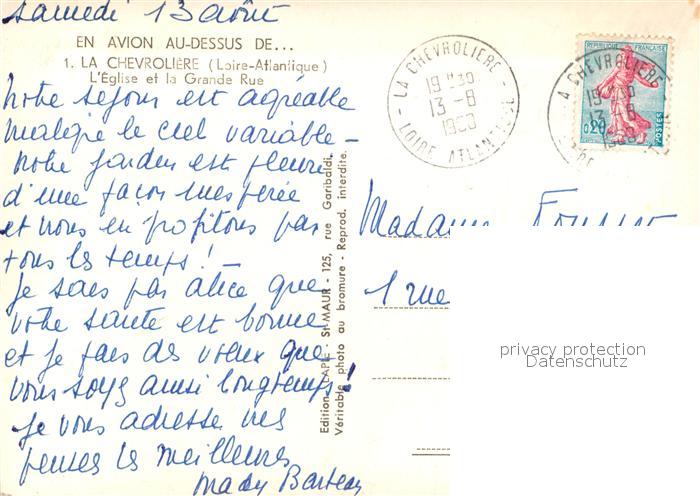 Samedi 13 août
EN AVION AU-DESSUS DE...
1. LA CHEVROLIÈRE (Loire-Atlantique)
L'Église et la Grande Rue
Notre séjour est agréable
malgré le ciel variable -
Notre jardin est fleuri
d'une façon inespérée
et nous en profitons par
tous les temps! -
Je sais par alice que
votre santé est bonne
et je fais des voeux que
vous soyez aussi longtemps!
Je vous adresse mes
pensées les meilleures
Mady
Edition LAPIE - St-MAUR - 125, rue Garibaldi.
Véritable photo au bromure - Reprod. interdite.
LA CHEVROLIERE
19 H 30
13 - 8
1960
LOIRE ATLANTIQUE
REPUBLIQUE FRANÇAISE
0,20
POSTES
A CHEVROLIERE
19 H 30
13 - 8
1960
Madame
1 rue
privacy protection
Datenschutz